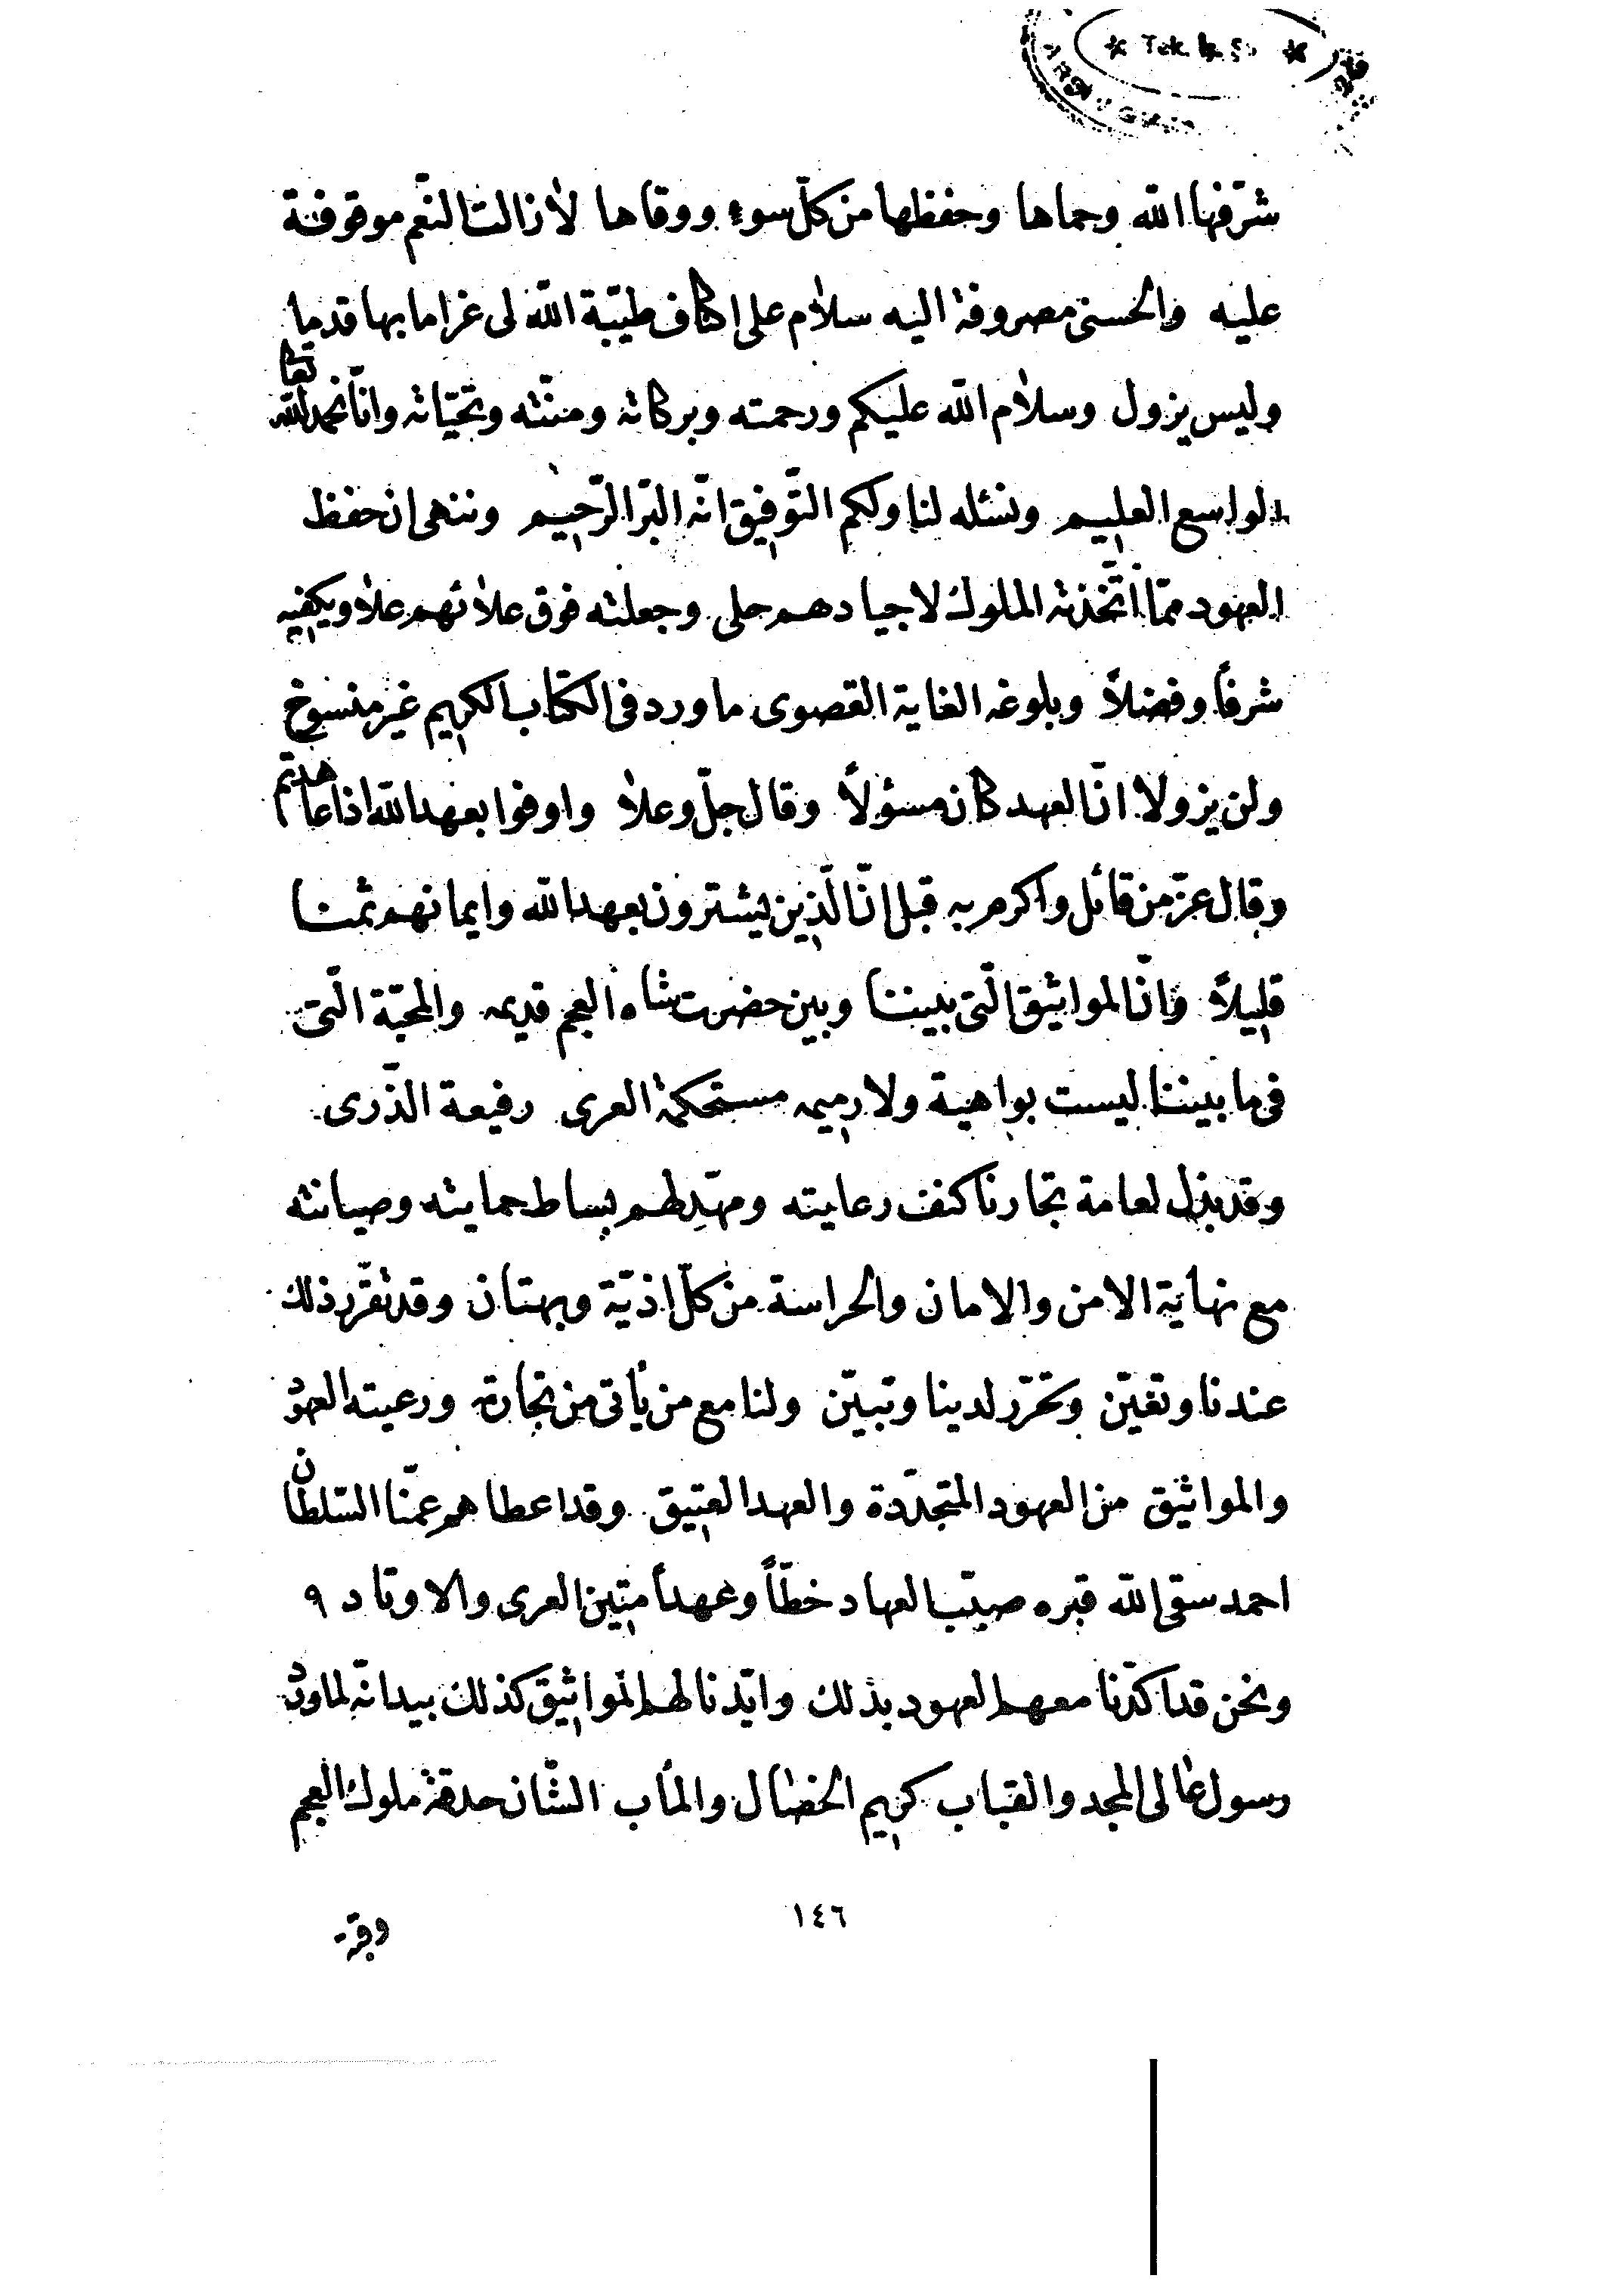 Tek. İş. Ş
شرّفها الله وحماها وحفظها من كلّ سوء ووقاها لا زالت النّعم موقوفة
عليه والحسنى مصروفة اليه سلام على اكناف طيّبة الله لى غراما بها قديما
وليس يزول وسلام الله عليكم ورحمته وبركاته ومننته وتحيّاته وانّا نحمد الله تعالى
الواسع العليم ونسئله لنا ولكم التّوفيق انّه البرّ الرّحيم وننهى ان حفظ
العهود ممّا اتّخذته الملوك لاجيادهم حلى وجعلته فوق علائهم علا ويكفيه
شرفاً وفضلاً وبلوغه الغاية القصوى ما ورد فى الكتاب الكريم غير منسوخ
ولن يزولا انّ العهد كان مسؤلاً وقال جلّ وعلا واوفوا بعهد الله اذا عاهدتم
وقال عزّ من قائل واكرم به قبل انّ الّذين يشترون بعهد الله وايمانهم ثمنا
قليلاً وانّ المواثيق الّتى بيننا وبين حضرت شاه العجم قديمه والمحبّة الّتى
فى ما بيننا ليست بواهية ولا رميمه مستحكمة العرى رفيعة الذّرى
وقد بذل لعامة تجارنا كنف رعايته ومهّد لهم بساط حمايته وصيانته
مع نهاية الامن والامان والحراسة من كلّ اذيّة وبهتان وقد تقرّر ذلك
عندنا وتعيّن وتحرّر لدينا وتبيّن ولنا مع من يأتى من تجارته ورعيته العهود
والمواثيق من العهود المتجدّدة والعهد العتيق وقد اعطاهم عمّنا السّلطان
احمد سقى الله قبره صيّب العهاد خطّاً وعهداً متين العرى والاوتاد ٩
ونحن قد اكّدنا معهم العهود بذلك وايّدنا لهم المواثيق كذلك بيد انّه لما ورد
رسول عالى المجد والقباب كريم الخصال والمأب الشّان حدقة ملوك العجم
١٤٦
وقرّ